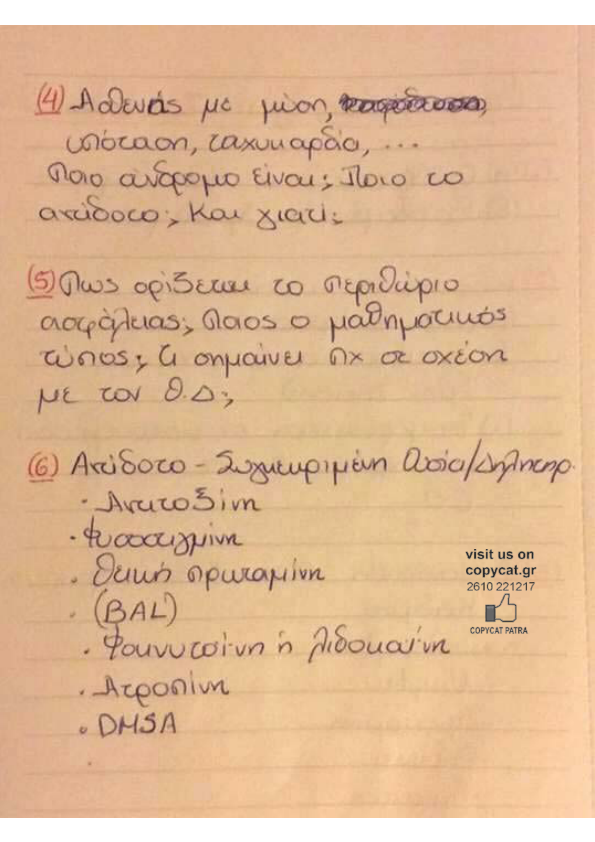 (4) Ασθενής με μύση,
υπόταση, ταχυκαρδία, ...
Ποιο σύνδρομο είναι; Ποιο το
αντίδοτο; Και γιατί;
(5) Πως ορίζεται το περιθώριο
ασφάλειας; Ποιος ο μαθηματικός
τύπος; Τι σημαίνει πχ σε σχέση
με τον Θ.Δ;
(6) Αντίδοτο - Συγκεκριμένη Ουσία/Δηλητηρ.
· Αντιτοξίνη
· Φυσοστιγμίνη
· Θειική πρωταμίνη
· (BAL)
· Φαινυτοΐνη ή λιδοκαΐνη
· Ατροπίνη
· DMSA
visit us on
copycat.gr
2610 221217
COPYCAT PATRA